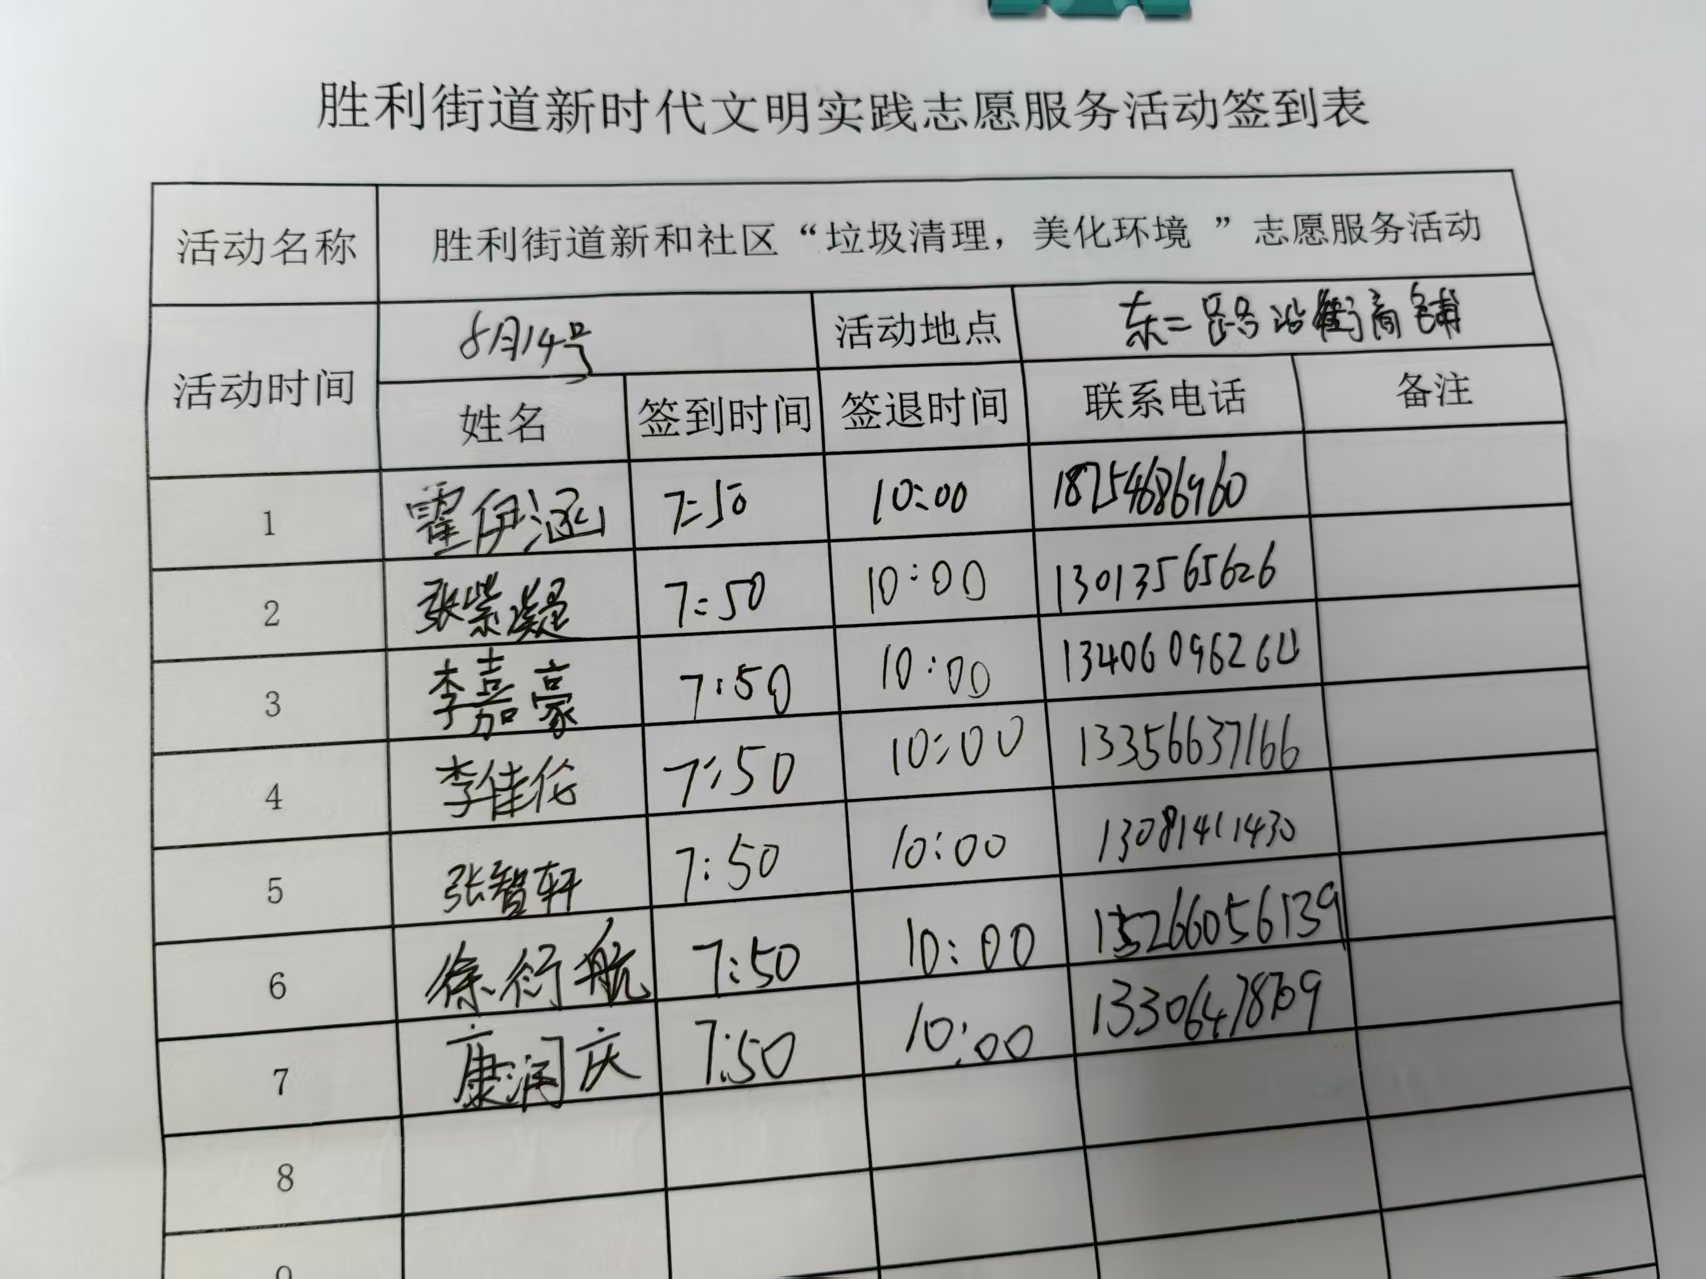 胜利街道新时代文明实践志愿服务活动签到表
活动名称 胜利街道新和社区“垃圾清理，美化环境 ”志愿服务活动
活动时间 8月14号 活动地点 东二路沿街商铺
姓名 签到时间 签退时间 联系电话 备注
1 霍伊涵 7:50 10:00 18254686960
2 张紫凝 7:50 10:00 13013565626
3 李嘉豪 7:50 10:00 13406096264
4 李佳伦 7:50 10:00 13356637166
5 张智轩 7:50 10:00 13081411430
6 徐衍航 7:50 10:00 15266056139
7 康润庆 7:50 10:00
8